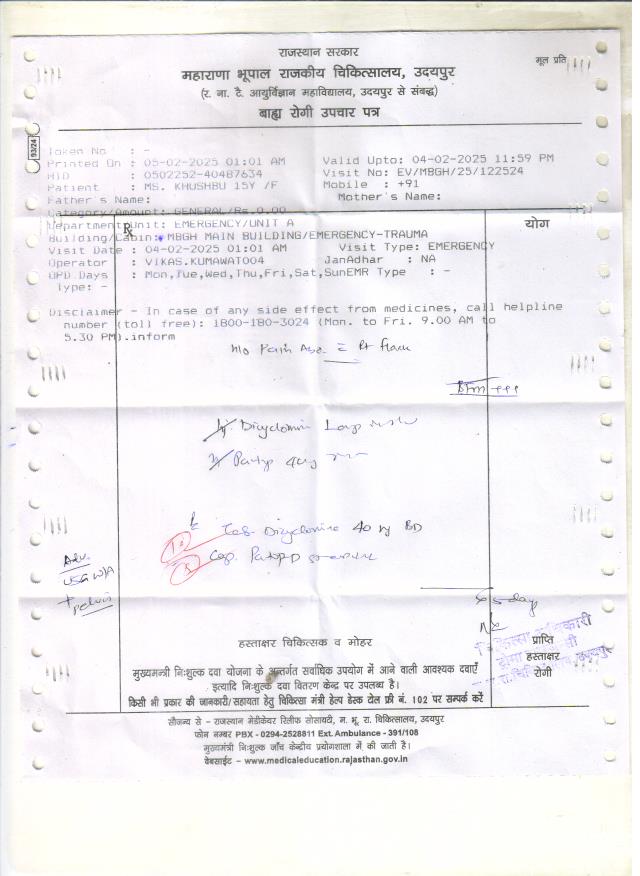 राजस्थान सरकार
मूल प्रति
महाराणा भूपाल राजकीय चिकित्सालय, उदयपुर
(र. ना. टै. आयुर्विज्ञान महाविद्यालय, उदयपुर से संबद्ध)
बाह्य रोगी उपचार पत्र
93/24
Token No : -
Printed On : 05-02-2025 01:01 AM Valid Upto: 04-02-2025 11:59 PM
HID : 0502252-40487634 Visit No: EV/MBGH/25/122524
Patient : MS. KHUSHBU 15Y /F Mobile : +91
Father's Name: Mother's Name:
Category/Amount: GENERAL/Rs.0.00
Department/Unit: EMERGENCY/UNIT A
Rx
योग
Building/Cabin: MBGH MAIN BUILDING/EMERGENCY-TRAUMA
Visit Date : 04-02-2025 01:01 AM Visit Type: EMERGENCY
Operator : VIKAS.KUMAWAT004 JanAadhar : NA
OPD Days : Mon,Tue,Wed,Thu,Fri,Sat,SunEMR Type : -
Type: -
Disclaimer - In case of any side effect from medicines, call helpline
number (toll free): 1800-180-3024 (Mon. to Fri. 9.00 AM to
5.30 PM).inform
H/o Pain Rt flank
Dicyclomin
40mg
Tab. Dicyclomine 40 mg BD
10
Cap.
5
Adv.
USG W/A
+ pelvis
x 5 day
हस्ताक्षर चिकित्सक व मोहर
प्राप्ति
हस्ताक्षर
रोगी
मुख्यमन्त्री निःशुल्क दवा योजना के अन्तर्गत सर्वाधिक उपयोग में आने वाली आवश्यक दवाएँ
इत्यादि निःशुल्क दवा वितरण केन्द्र पर उपलब्ध है।
किसी भी प्रकार की जानकारी/सहायता हेतु चिकित्सा मंत्री हेल्प डेस्क टोल फ्री नं. 102 पर सम्पर्क करें
सौजन्य से - राजस्थान मेडीकेयर रिलीफ सोसायटी, म. भू. रा. चिकित्सालय, उदयपुर
फोन नम्बर PBX - 0294-2528811 Ext. Ambulance - 391/108
मुख्यमंत्री निःशुल्क जाँच केन्द्रीय प्रयोगशाला में की जाती है।
वेबसाईट - www.medicaleducation.rajasthan.gov.in